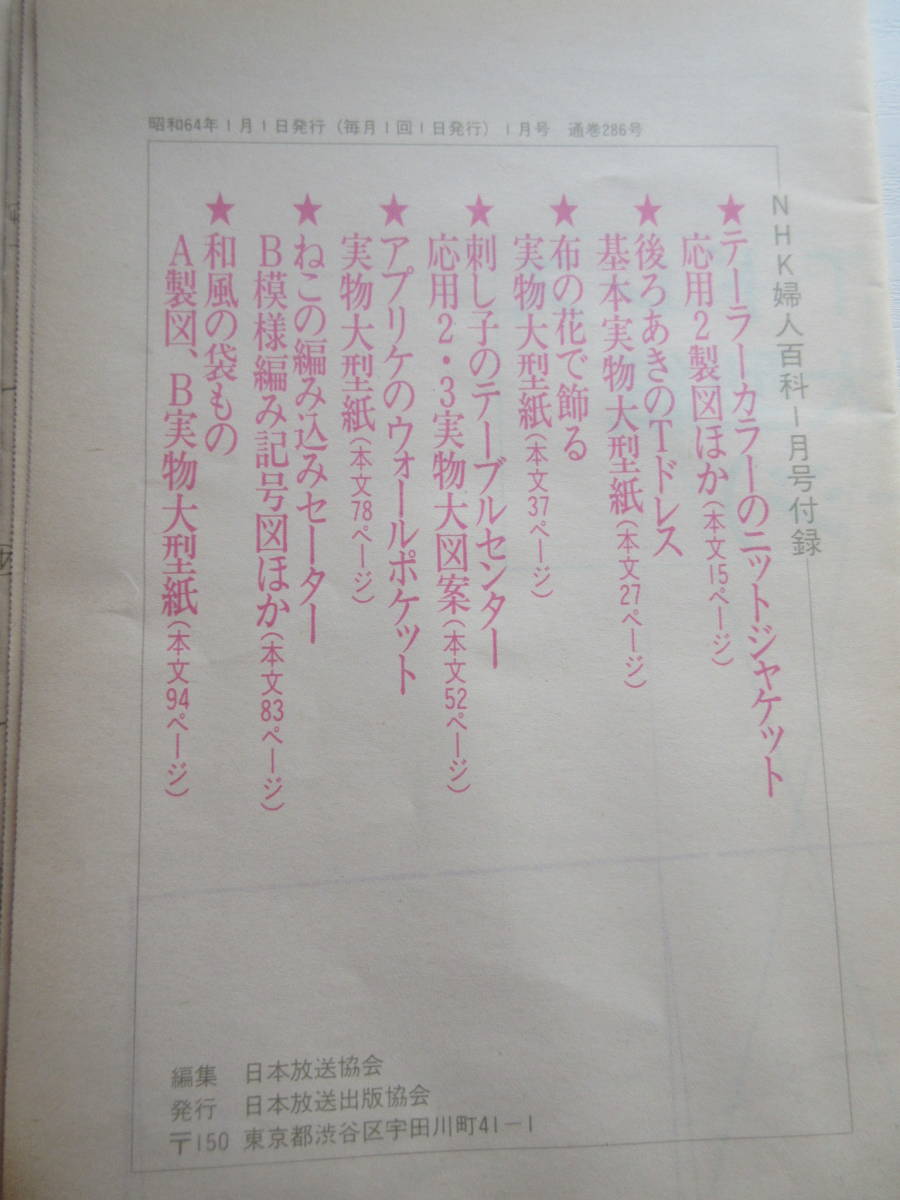 昭和64年1月1日発行（毎月1回1日発行）1月号　通巻286号
NHK婦人百科1月号付録
★テーラーカラーのニットジャケット
応用2製図ほか（本文15ページ）
★後ろあきのTドレス
基本実物大型紙（本文27ページ）
★布の花で飾る
実物大型紙（本文37ページ）
★刺し子のテーブルセンター
応用2・3実物大図案（本文52ページ）
★アプリケのウォールポケット
実物大型紙（本文78ページ）
★ねこの編み込みセーター
B模様編み記号図ほか（本文83ページ）
★和風の袋もの
A製図、B実物大型紙（本文94ページ）
編集　日本放送協会
発行　日本放送出版協会
〒150 東京都渋谷区宇田川町41－1